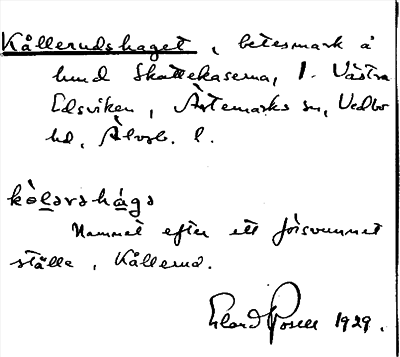 Kållerudshaget, betesmark å
hmd Skattekaserna, 1. Västra
Edsviken, Ärtemarks sn, Vedbo
hd, Älvsb. l.
kòlərshága
Namnet efter ett försvunnet
ställe, Kållerud.
Erland Rosell 1929.